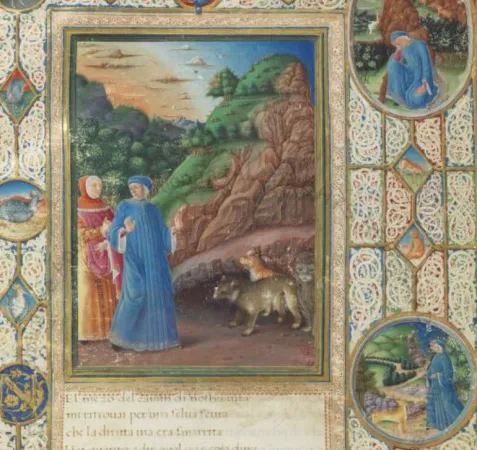 EL mezo del camin di nostra uita
mi ritrouai per una selua scura
che la diritta uia era smarrita